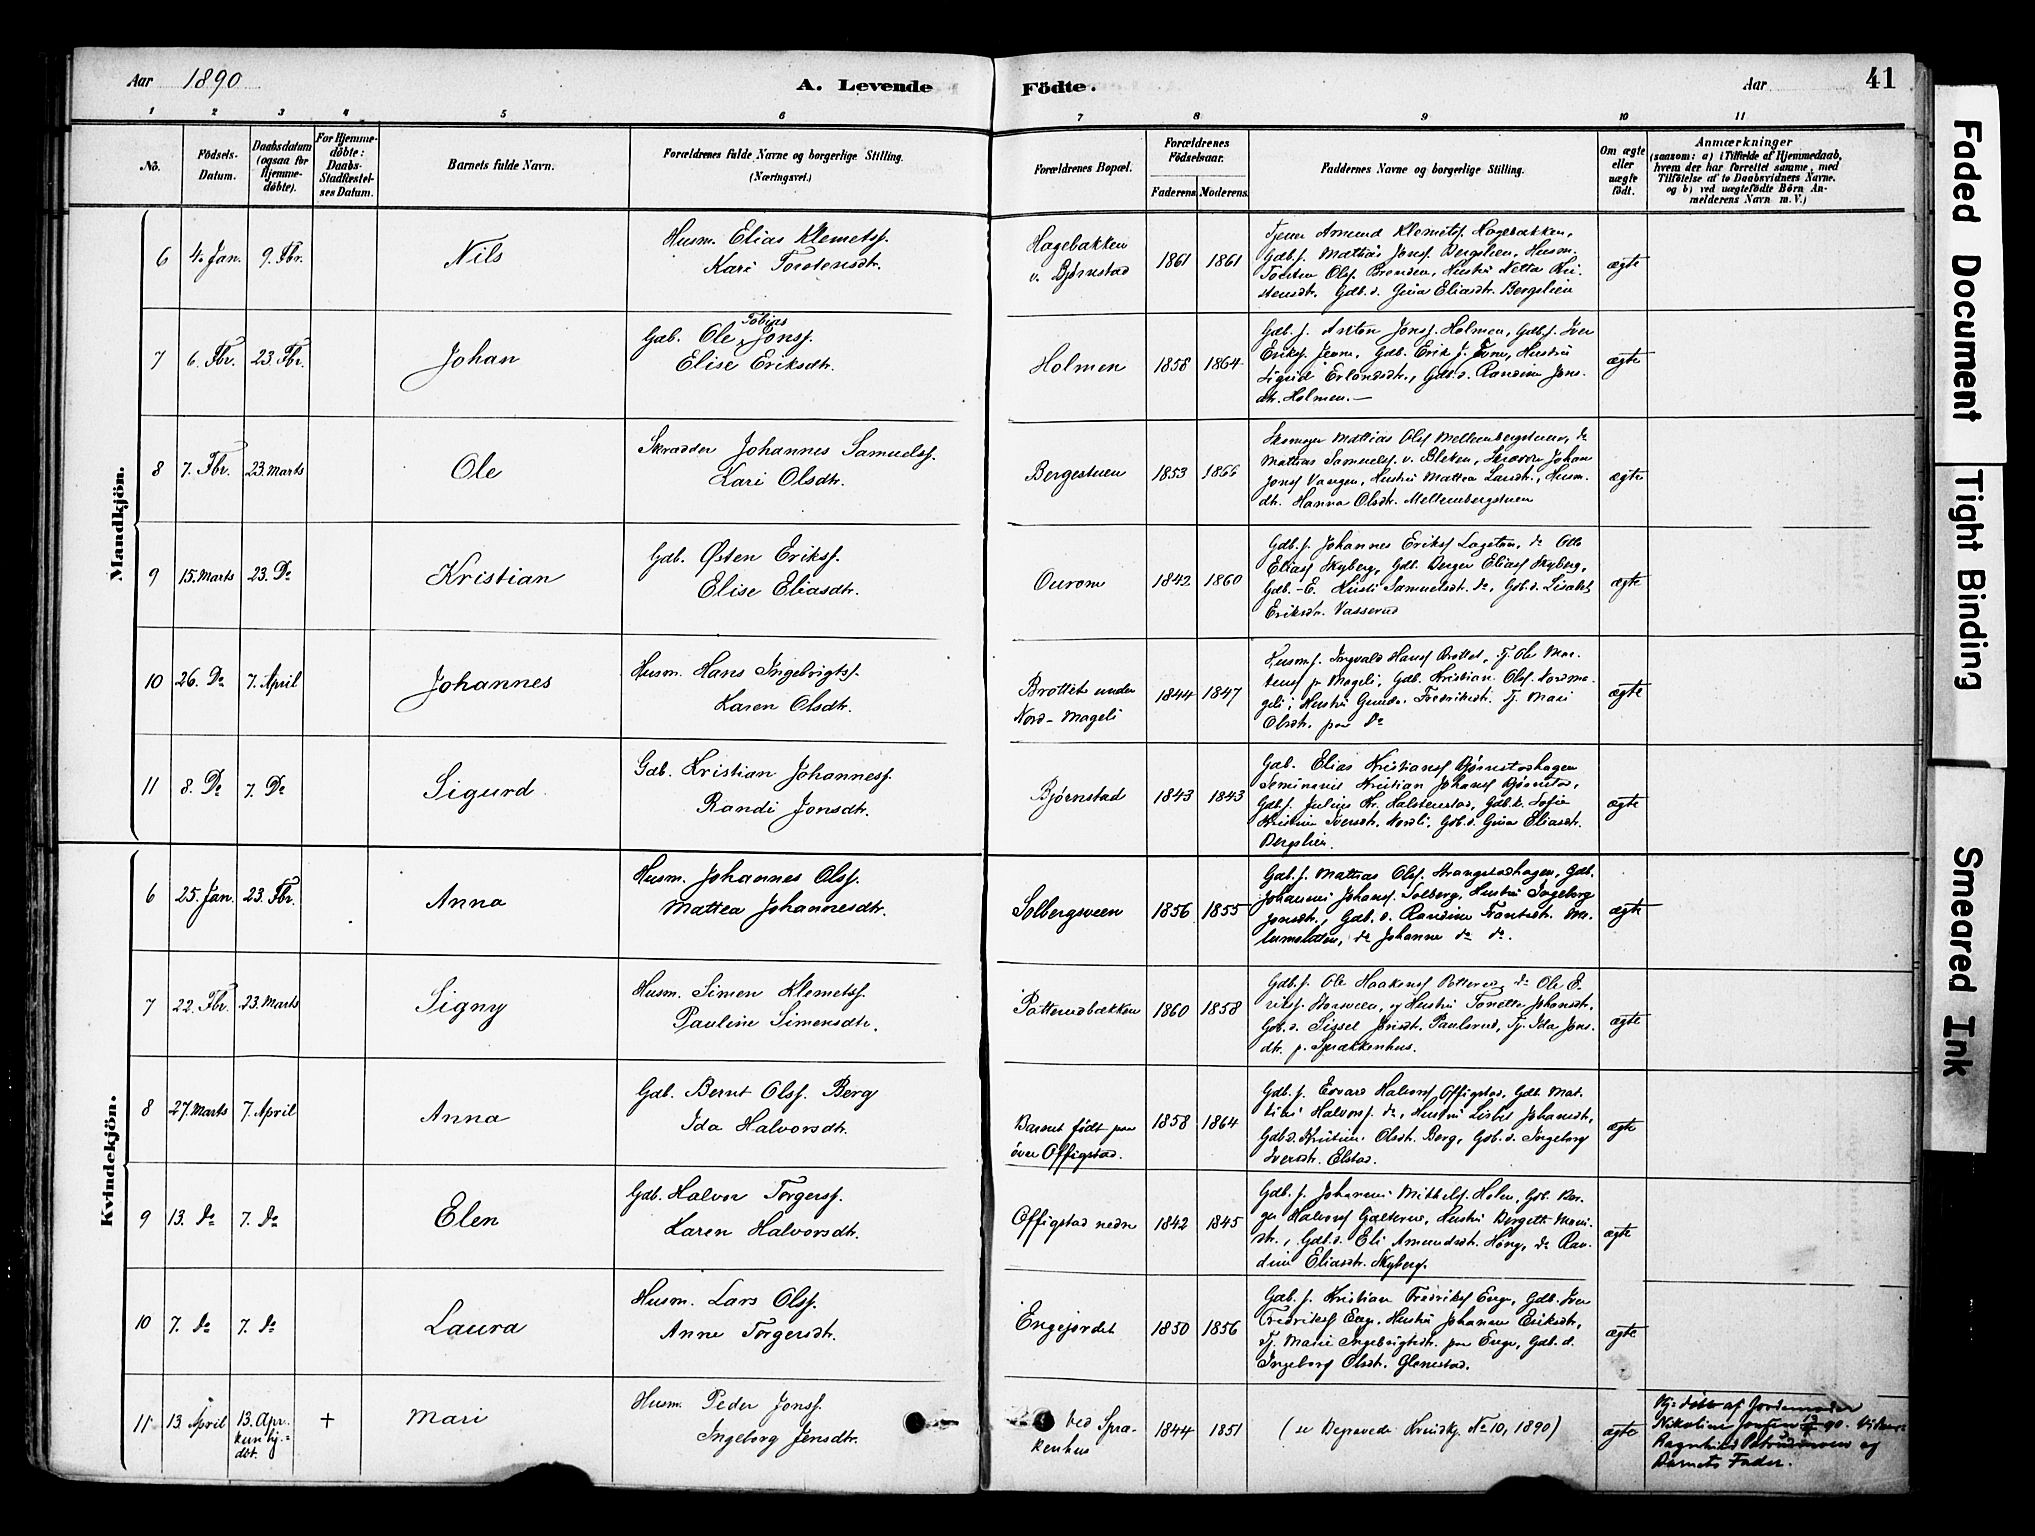 Aar 1890
A. Levende
Födte.
Aar
41
1 2 3 4 5 6 7 8 9 10 11
No.
Födsels-
Datum.
Daabsdatum
(ogsaa for
Hjemme-
døbte).
For Hjemme-
døbte:
Daabs-
Stadfæstel-
ses Datum.
Barnets fulde Navn.
Forældrenes fulde Navne og borgerlige Stilling.
(Næringsvei.)
Forældrenes Bopæl.
Forældrenes
Födselsaar.
Faderens. Moderens.
Faddernes Navne og borgerlige Stilling.
Om ægte
eller
uægte
födt.
Anmærkninger
(saasom: a) i Tilfælde af Hjemmedaab,
hvem der har forrettet samme, med
Tilføielse af to Daabsvidners Navne.
og b) ved uægtefödte Börn An-
melderens Navn m. V.)
Mandkjön.
6 4. Jan. 9. Fbr. Nils
Husm. Elias Klemetsf.
Kari Torstensdtr.
Hagebakken
v. Bjørnstad
1861 1861
Tjener Amund Klemetsf. Hagebakken,
Gdb.f. Mathias Jonsf. Bergslien, Husm.
Torsten Olsf. Brenden, Hustru Netta Kri-
stensdtr. Gdb.d. Gina Eliasdtr. Bergslien
ægte
7 6. Fbr. 23. Fbr. Johan
Gdb. Ole Tobias Jonsf.
Elise Eriksdtr.
Holmen
1858 1864
Gdb.f. Anton Jonsf. Holmen, Gdb.f. Iver
Eriksf. Jevne, Gdb. Erik J. Jevne, Hustru
Sigrid Erlandsdtr., Gdb.d. Randine Jons-
dtr. Holmen.
ægte
8 7. Fbr. 23. Marts Ole
Skrædder Johannes Samuelsf.
Kari Olsdtr.
Bergestuen
1853 1866
Skomager Mathias Olsf. Mellembergstuen, do
Mathias Samuelsf. v. Bleken, Skrædder Johan
Jonsf. Vangen, Hustru Mattea Larsdtr., Husm.
dtr. Hanna Olsdtr. Mellembergstuen
ægte
9 15. Marts 23. Do Kristian
Gdb. Østen Eriksf.
Elise Eliasdtr.
Ourom
1842 1860
Gdb.f. Johannes Eriksf. do Otto
Eliasf. Skyberg, Gdb. Berger Eliasf. Skyberg,
Gdb.-E. Samuelsdtr. do, Gdb.d. Lisabet
Eriksdtr. Vasserud
ægte
10 26. Do 7. April Johannes
Husm. Hans Ingebrigtsf.
Karen Olsdtr.
Brottet under
Nord-Mageli
1844 1847
Husm.f. Ingvald Hansf. Brottet, Tj. Ole Mar-
tensf. p. Mageli, Gdb. Kristian Olsf. Nordma-
geli, Hustru Gunda Fredriksdtr. Tj. Mari
Olsdtr. paa Do
ægte
11 8. Do 7. Do Sigurd
Gdb. Kristian Johannesf.
Randi Jonsdtr.
Bjørnstad
1843 1843
Gdb. Elias Kristiansf. Bjørnstadhagen
Seminarist Kristian Johansf. Bjørnstad,
Gdb.f. Julius Kr. Halstenstad, Gdb.k. Sofie
Kristine Iversdtr. Nordli, Gdb.d. Gina Eliasdtr.
Bergslien.
ægte
Kvindekjön.
6 25. Jan. 23. Fbr. Anna
Husm. Johannes Olsf.
Mattea Johannesdtr.
Solbergsveen
1856 1855
Gdb.f. Mathias Olsf. Strangstadhagen, Gdb.
Johannes Johansf. Solberg, Hustru Ingeborg
Jonsdtr., Gdb.d. Randine Frantsdtr.
do Johanne do do.
ægte
7 22. Fbr. 23. Marts Signy
Husm. Simen Klemetsf.
Pauline Simensdtr.
Potterudbakken
1860 1858
Gdb.f. Ole Haakensf. Potterud, do Ole E-
riksf. Storsveen, og Hustru Tonette Johansdtr.
Gdb.d. Sissel Jonsdtr. Paulsrud, Tj. Ida Jons-
dtr. p. Sprækkenhus.
ægte
8 27. Marts 7. April Anna
Gdb. Bernt Olsf. Berg
Ida Halvorsdtr.
Barnet født paa
över Offigstad.
1858 1864
Gdb.f. Edvard Halvorsf. Offigstad, Gdb. Mat-
Halvorsf. do, Hustru Lisbet Johansdtr.,
Gdb.d. Kristine Olsdtr. Berg, Gdb.d. Ingeborg
Iversdtr. Elstad.
ægte
9 13. do 7. do Elen
Gdb. Halvor Torgersf.
Karen Halvorsdtr.
Offigstad nedre
1842 1845
Gdb.f. Johannes Mikkelsf. Holen, Gdb. Bør-
ge Halvorsf. Galterud, Hustru Bergette
dtr., Gdb.d. Eli Amundsdtr. Høug, do Ran-
dine Eliasdtr. Skyberg.
ægte
10 7. do 7. do Laura
Husm. Lars Olsf.
Anne Torgersdtr.
Engejordet
1850 1856
Gdb.f. Kristian Fredriksf. Enge, Gdb. Iver
Fredriksf. Enge, Hustru Johanne Eriksdtr.,
Tj. Marie Ingebrigtsdtr. paa Enge, Gdb.d.
Ingeborg Olsdtr. Glemestad.
ægte
11 13 April 13. Apr. kun hj.=
dbt. + Mari
Husm. Peder Jonsf.
Ingeborg Jensdtr.
ved Spræ-
kenhus
1844 1851
(se Begravede Kvindkj. No 10, 1890)
ægte
Hj.=døbt af Jordemoder
Nikoline Jonsen 13/4 90. Vidner:
Ragnhild og
Barnets Fader.
Faded Document
Tight Binding
Smeared Ink